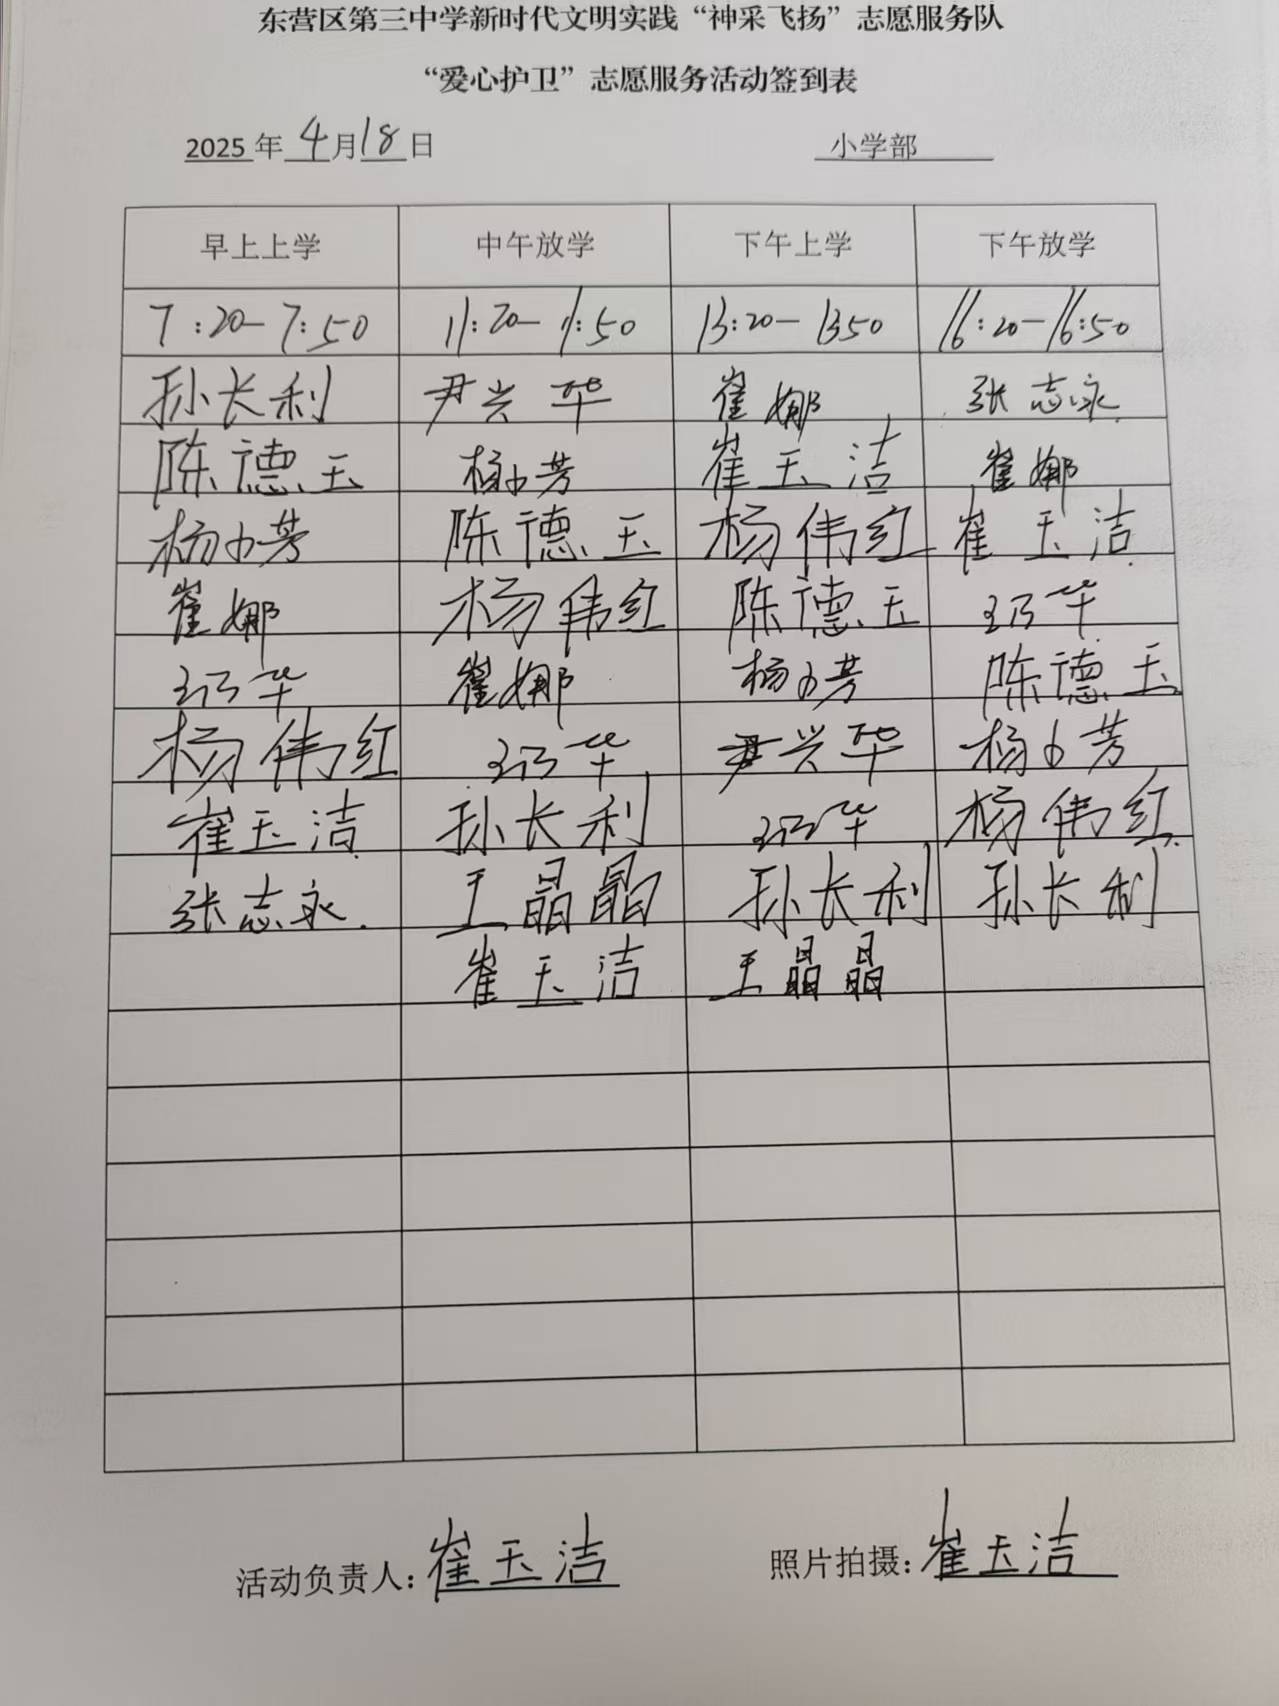 东营区第三中学新时代文明实践“神采飞扬”志愿服务队
“爱心护卫”志愿服务活动签到表
2025年4月18日 小学部
早上上学 中午放学 下午上学 下午放学
7:20-7:50 11:20-11:50 13:20-1350 16:20-16:50
孙长利 尹兴华 崔娜 张志永
陈德玉 杨小芳 崔玉洁 崔娜
杨小芳 陈德玉 杨伟红 崔玉洁
崔娜 杨伟红 陈德玉 华
华 崔娜 杨小芳 陈德玉
杨伟红 华 尹兴华 杨小芳
崔玉洁 孙长利 华 杨伟红
张志永 王晶晶 孙长利 孙长利
崔玉洁 王晶晶
活动负责人:崔玉洁 照片拍摄:崔玉洁